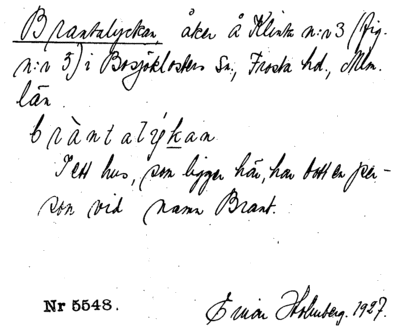 Brantalyckan åker å Klinta n:r 3 (fig.
n:r 3) i Bosjöklosters Sn., Frosta hd., Mlm.
län.
bràntalýkan
I ett hus, som ligger här, har bott en per-
son vid namn Brant.
Nr 5548.
Holmberg. 1927.